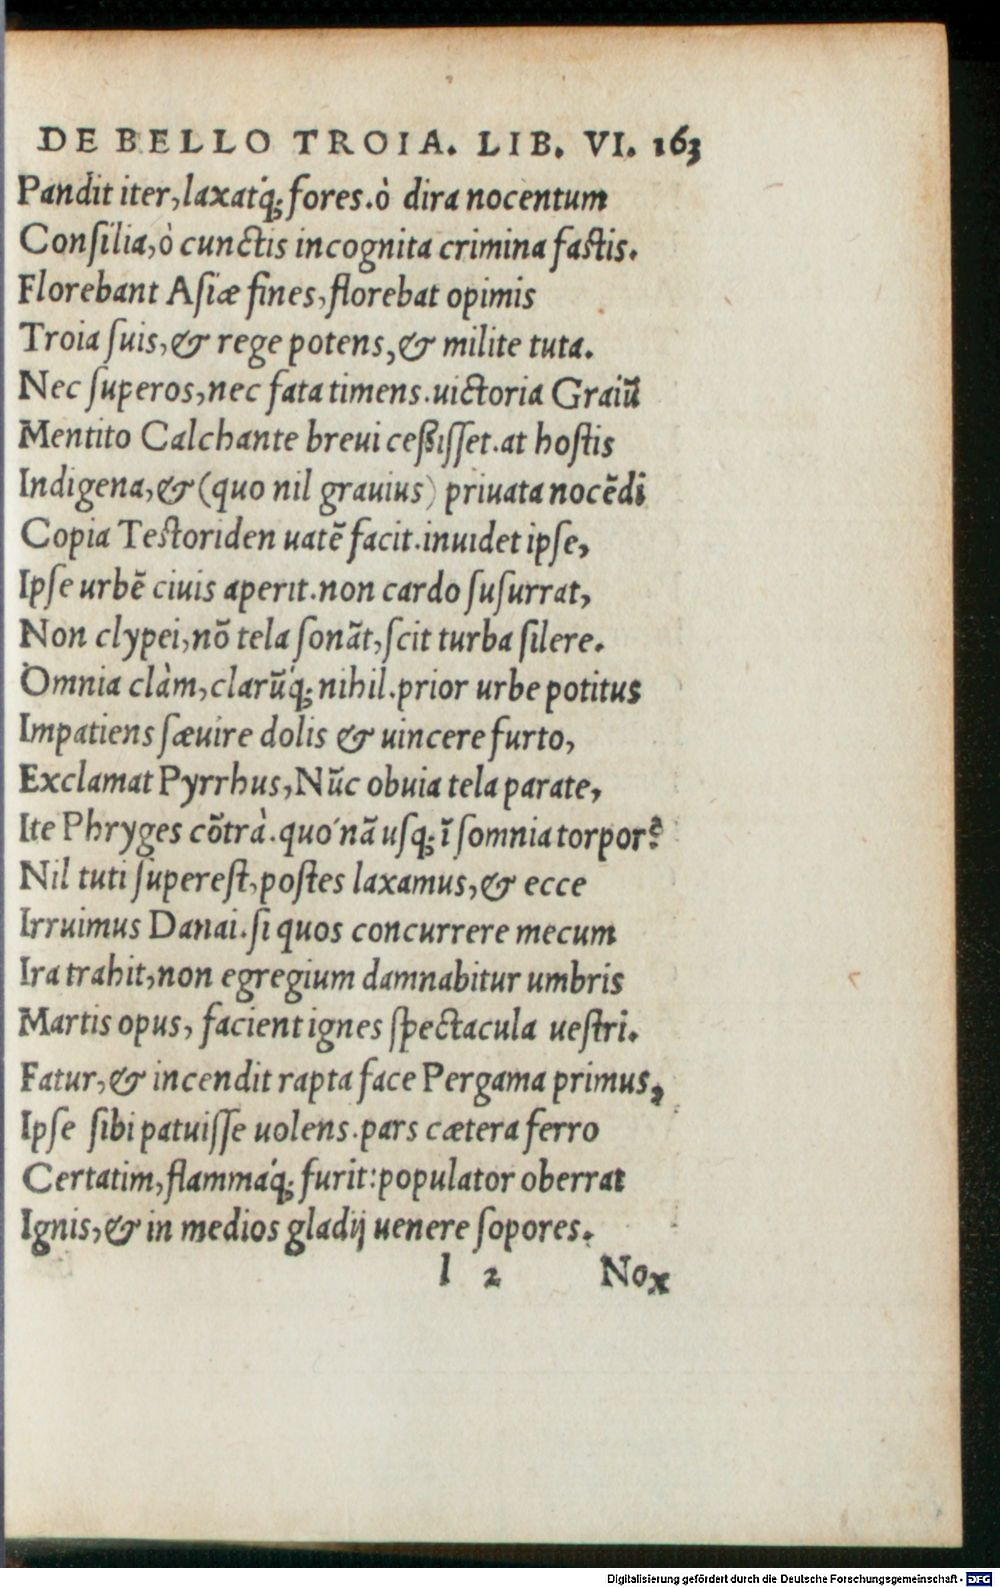 DE BELLO TROIA. LIB. VI. 163
Pandit iter, laxatq́; fores. ò dira nocentum
Conſilia, ò cunctis incognita crimina faſtis.
Florebant Aſiæ fines, florebat opimis
Troia ſuis, & rege potens, & milite tuta.
Nec ſuperos, nec fata timens. uictoria Graiū
Mentito Calchante breui ceßiſſet. at hoſtis
Indigena, & (quo nil grauius) priuata nocẽdi
Copia Teſtoriden uatẽ facit. inuidet ipſe,
Ipſe urbẽ ciuis aperit. non cardo ſuſurrat,
Non clypei, nõ tela ſonãt, ſcit turba ſilere.
Omnia clàm, clarũq́; nihil. prior urbe potitus
Impatiens ſæuire dolis & uincere furto,
Exclamat Pyrrhus, Nũc obuia tela parate,
Ite Phryges cõtrà. quo nã uſq; ĩ ſomnia torpor?
Nil tuti ſupereſt, poſtes laxamus, & ecce
Irruimus Danai. ſi quos concurrere mecum
Ira trahit, non egregium damnabitur umbris
Martis opus, facient ignes ſpectacula ueſtri.
Fatur, & incendit rapta face Pergama primus,
Ipſe ſibi patuiſſe uolens. pars cætera ferro
Certatim, flammáq́; furit: populator oberrat
Ignis, & in medios gladij uenere ſopores.
l 2 Nox
Digitalisierung gefördert durch die Deutsche Forschungsgemeinschaft - DFG